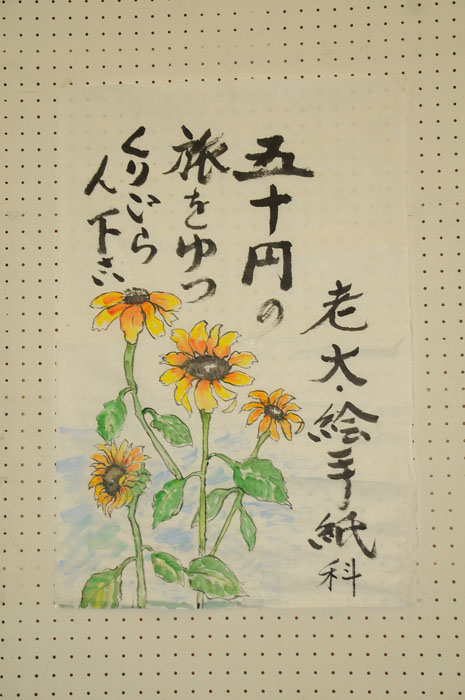 老大・絵手紙科
五十円の
旅をゆっ
くりごら
ん下さい